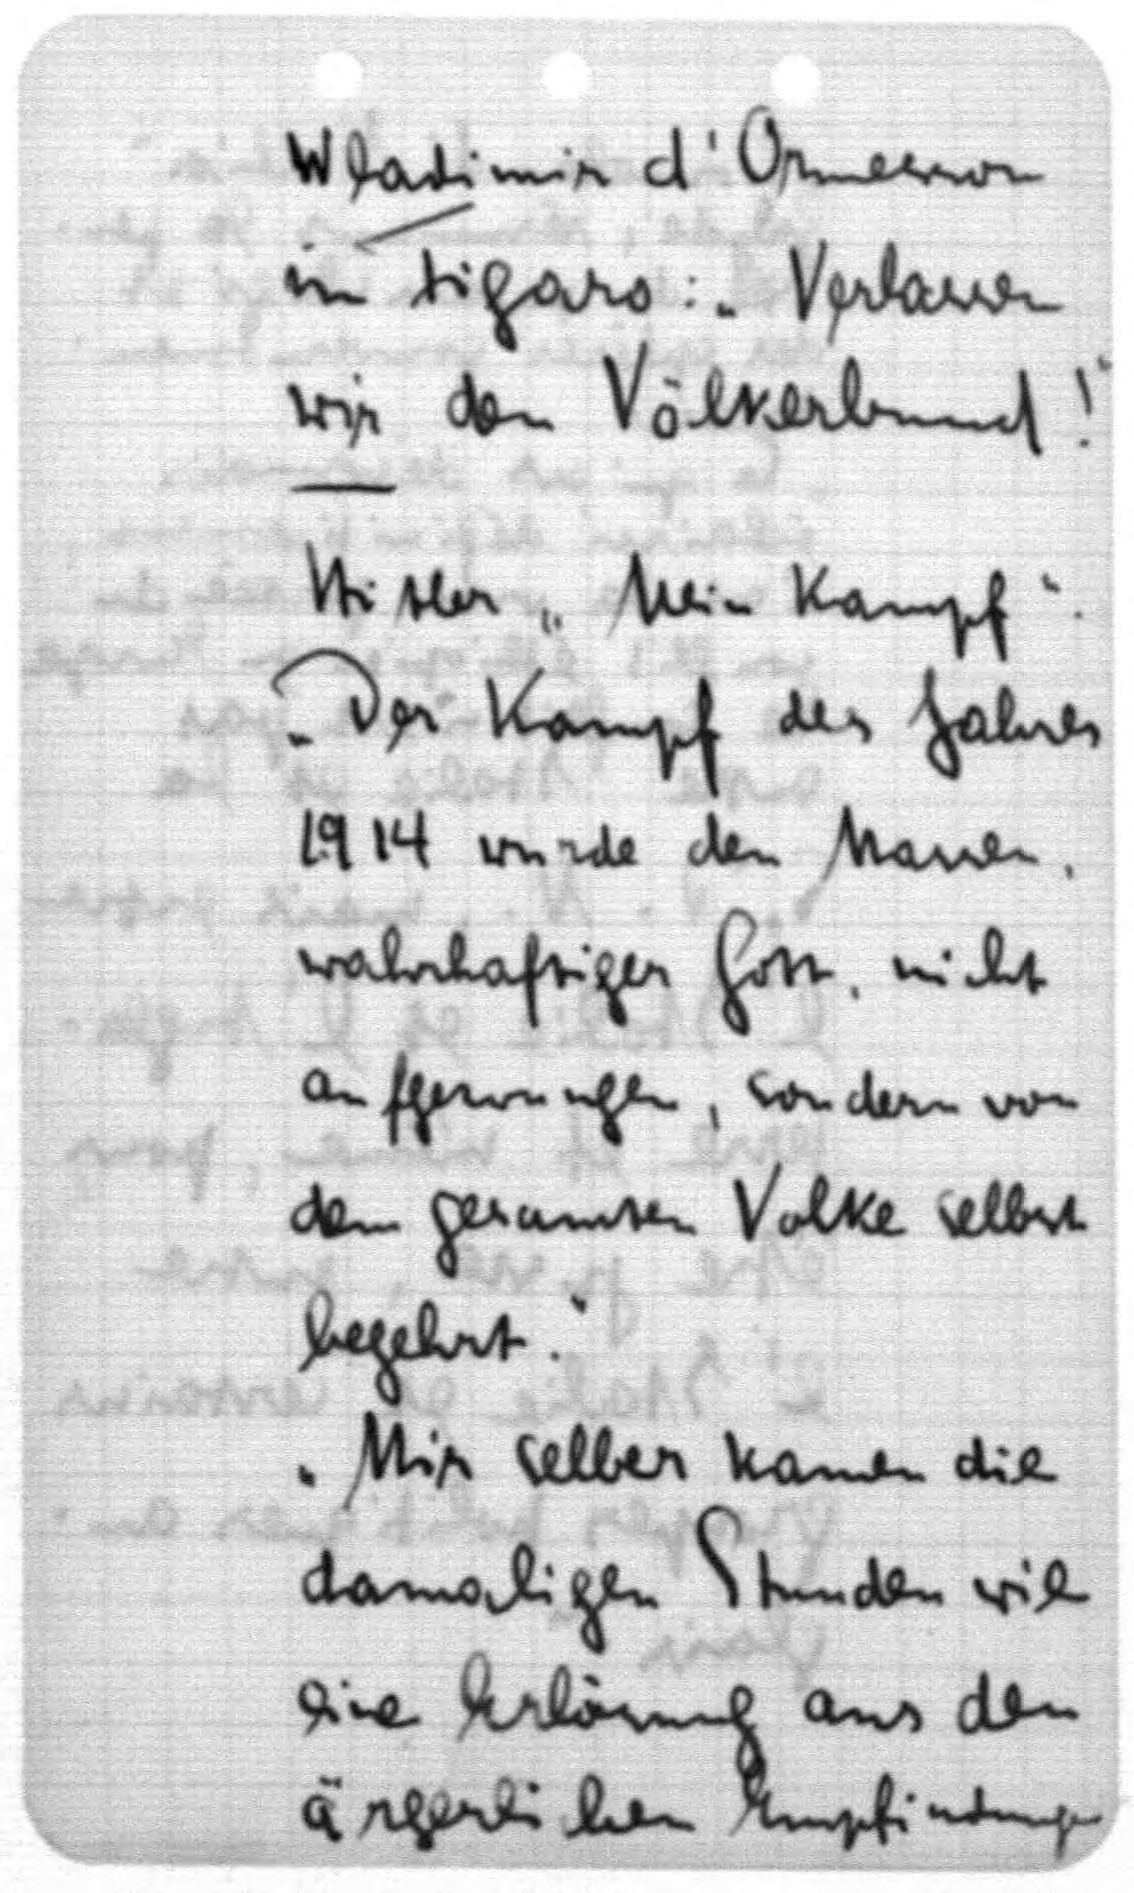 Wladimir d'Ormesson
im Figaro: „Verlassen
wir den Völkerbund!“
Hitler „Mein Kampf“.
„Der Kampf des Jahres
1914 wurde den Massen,
wahrhaftiger Gott, nicht
aufgezwungen, sondern von
dem gesamten Volke selbst
begehrt.“
„Mir selber kamen die
damaligen Stunden wie
eine Erlösung aus den
ärgerlichen Empfindungen